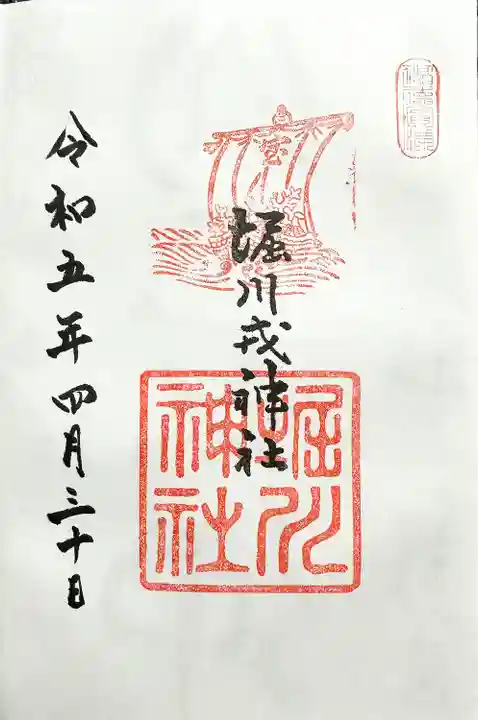 宝
堀川戎神社
堀川
神社
令和五年四月三十日